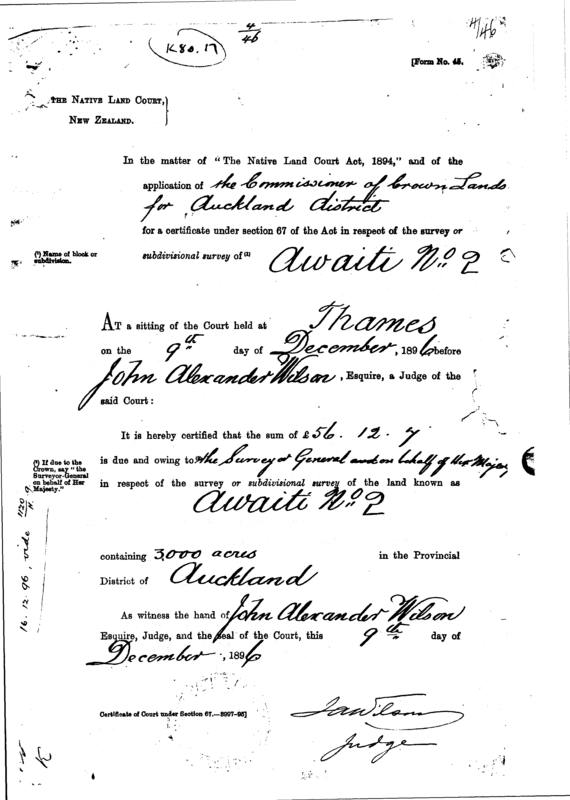 4/46
4/46
K80.17
[Form No. 45.
THE NATIVE LAND COURT,
NEW ZEALAND.
In the matter of "The Native Land Court Act, 1894," and of the
application of the Commissioner of Crown Lands
for Auckland district
for a certificate under section 67 of the Act in respect of the survey or
(¹) Name of block or
subdivision.
subdivisional survey of (¹) Awaiti No. 2
AT a sitting of the Court held at Thames
on the 9th day of December, 1896 before
John Alexander Wilson, Esquire, a Judge of the
said Court:
It is hereby certified that the sum of £56. 12. 7
(²) If due to the
Crown, say "the
Surveyor-General
on behalf of Her
Majesty."
is due and owing to the Surveyor General and on behalf of Her Majesty
in respect of the survey or subdivisional survey of the land known as
Awaiti No. 2
containing 3,000 acres in the Provincial
District of Auckland
As witness the hand of John Alexander Wilson
Esquire, Judge, and the seal of the Court, this 9th day of
December, 1896
16.12.96, vide
Certificate of Court under Section 67.—3997-95]
JAWilson
Judge
K